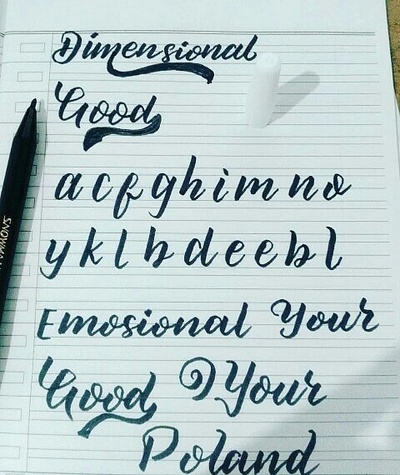 Dimensional
Good
a c f g h i m n o
y k l b d e e b l
Emosional Your
Good I Your
Poland